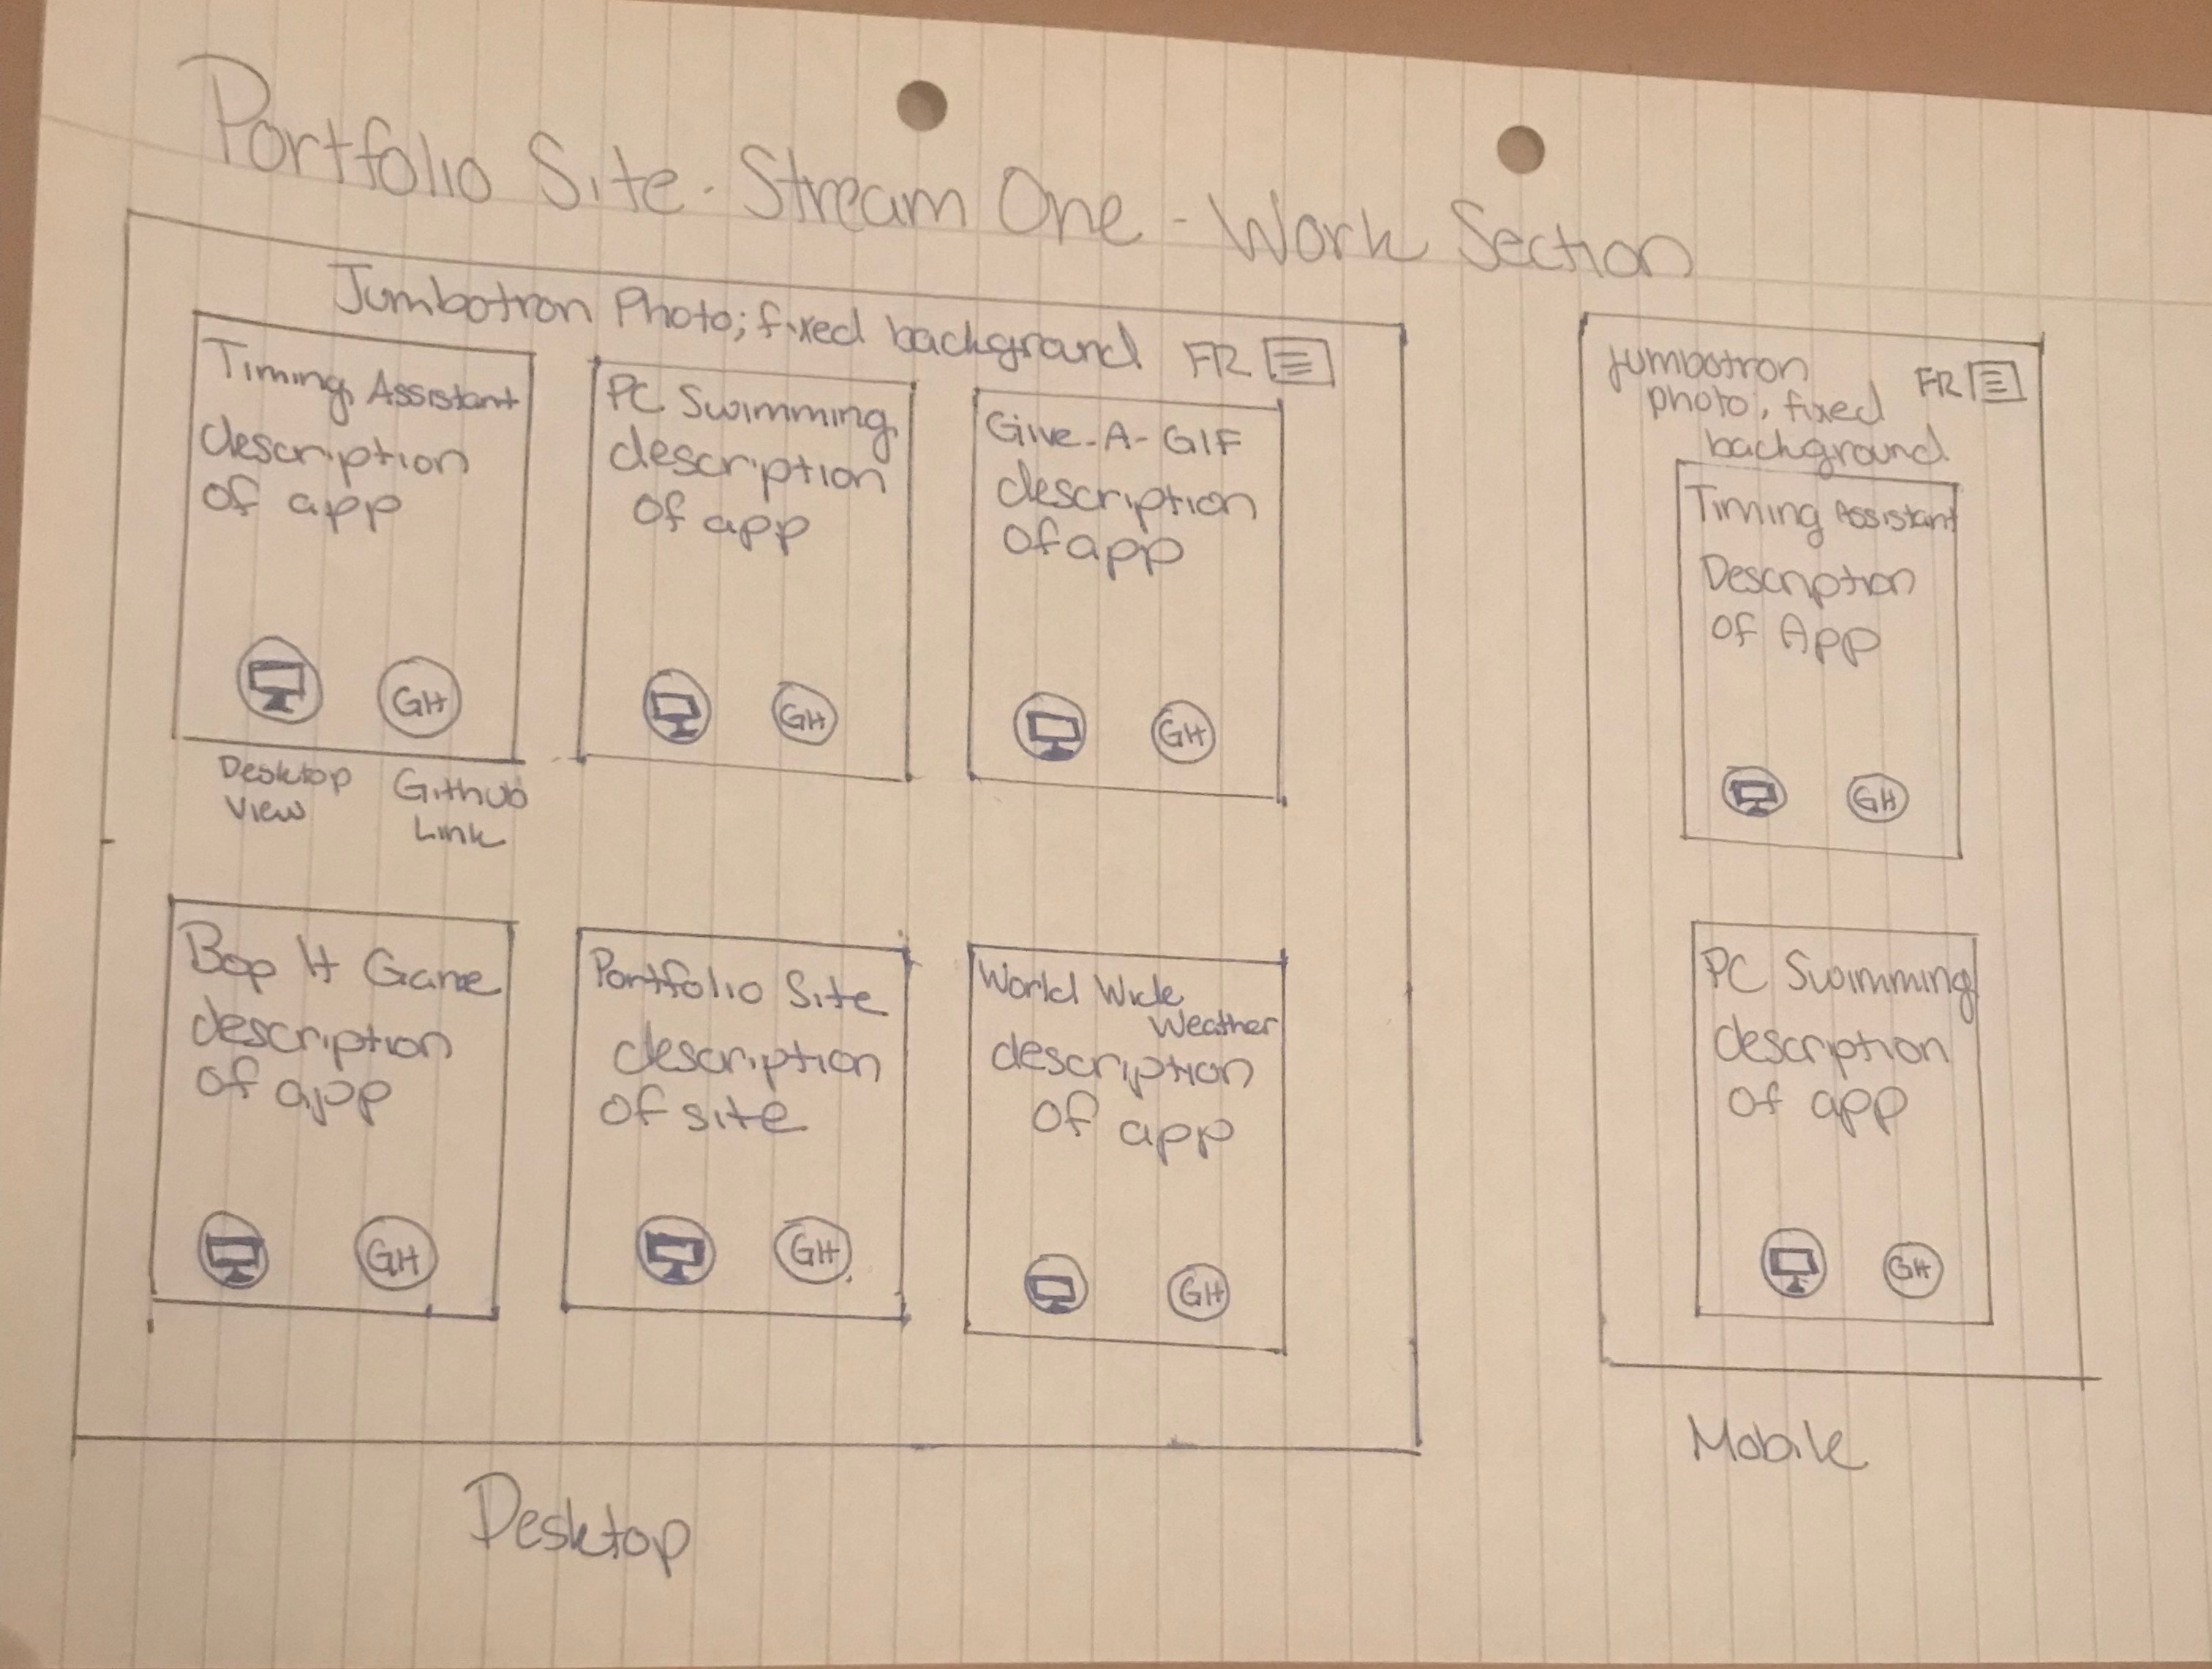 Portfolio Site - Stream One - Work Section
Jumbotron Photo; fixed background
FR
Timing Assistant
description
of app
GH
Desktop
View
Github
Link
PC Swimming
description
of app
GH
Give-A-GIF
description
of app
GH
Bop It Game
description
of app
GH
Portfolio Site
description
of site
GH
World Wide
Weather
description
of app
GH
Desktop
jumbotron
photo, fixed
background
FR
Timing Assistant
Description
of App
GH
PC Swimming
description
of app
GH
Mobile